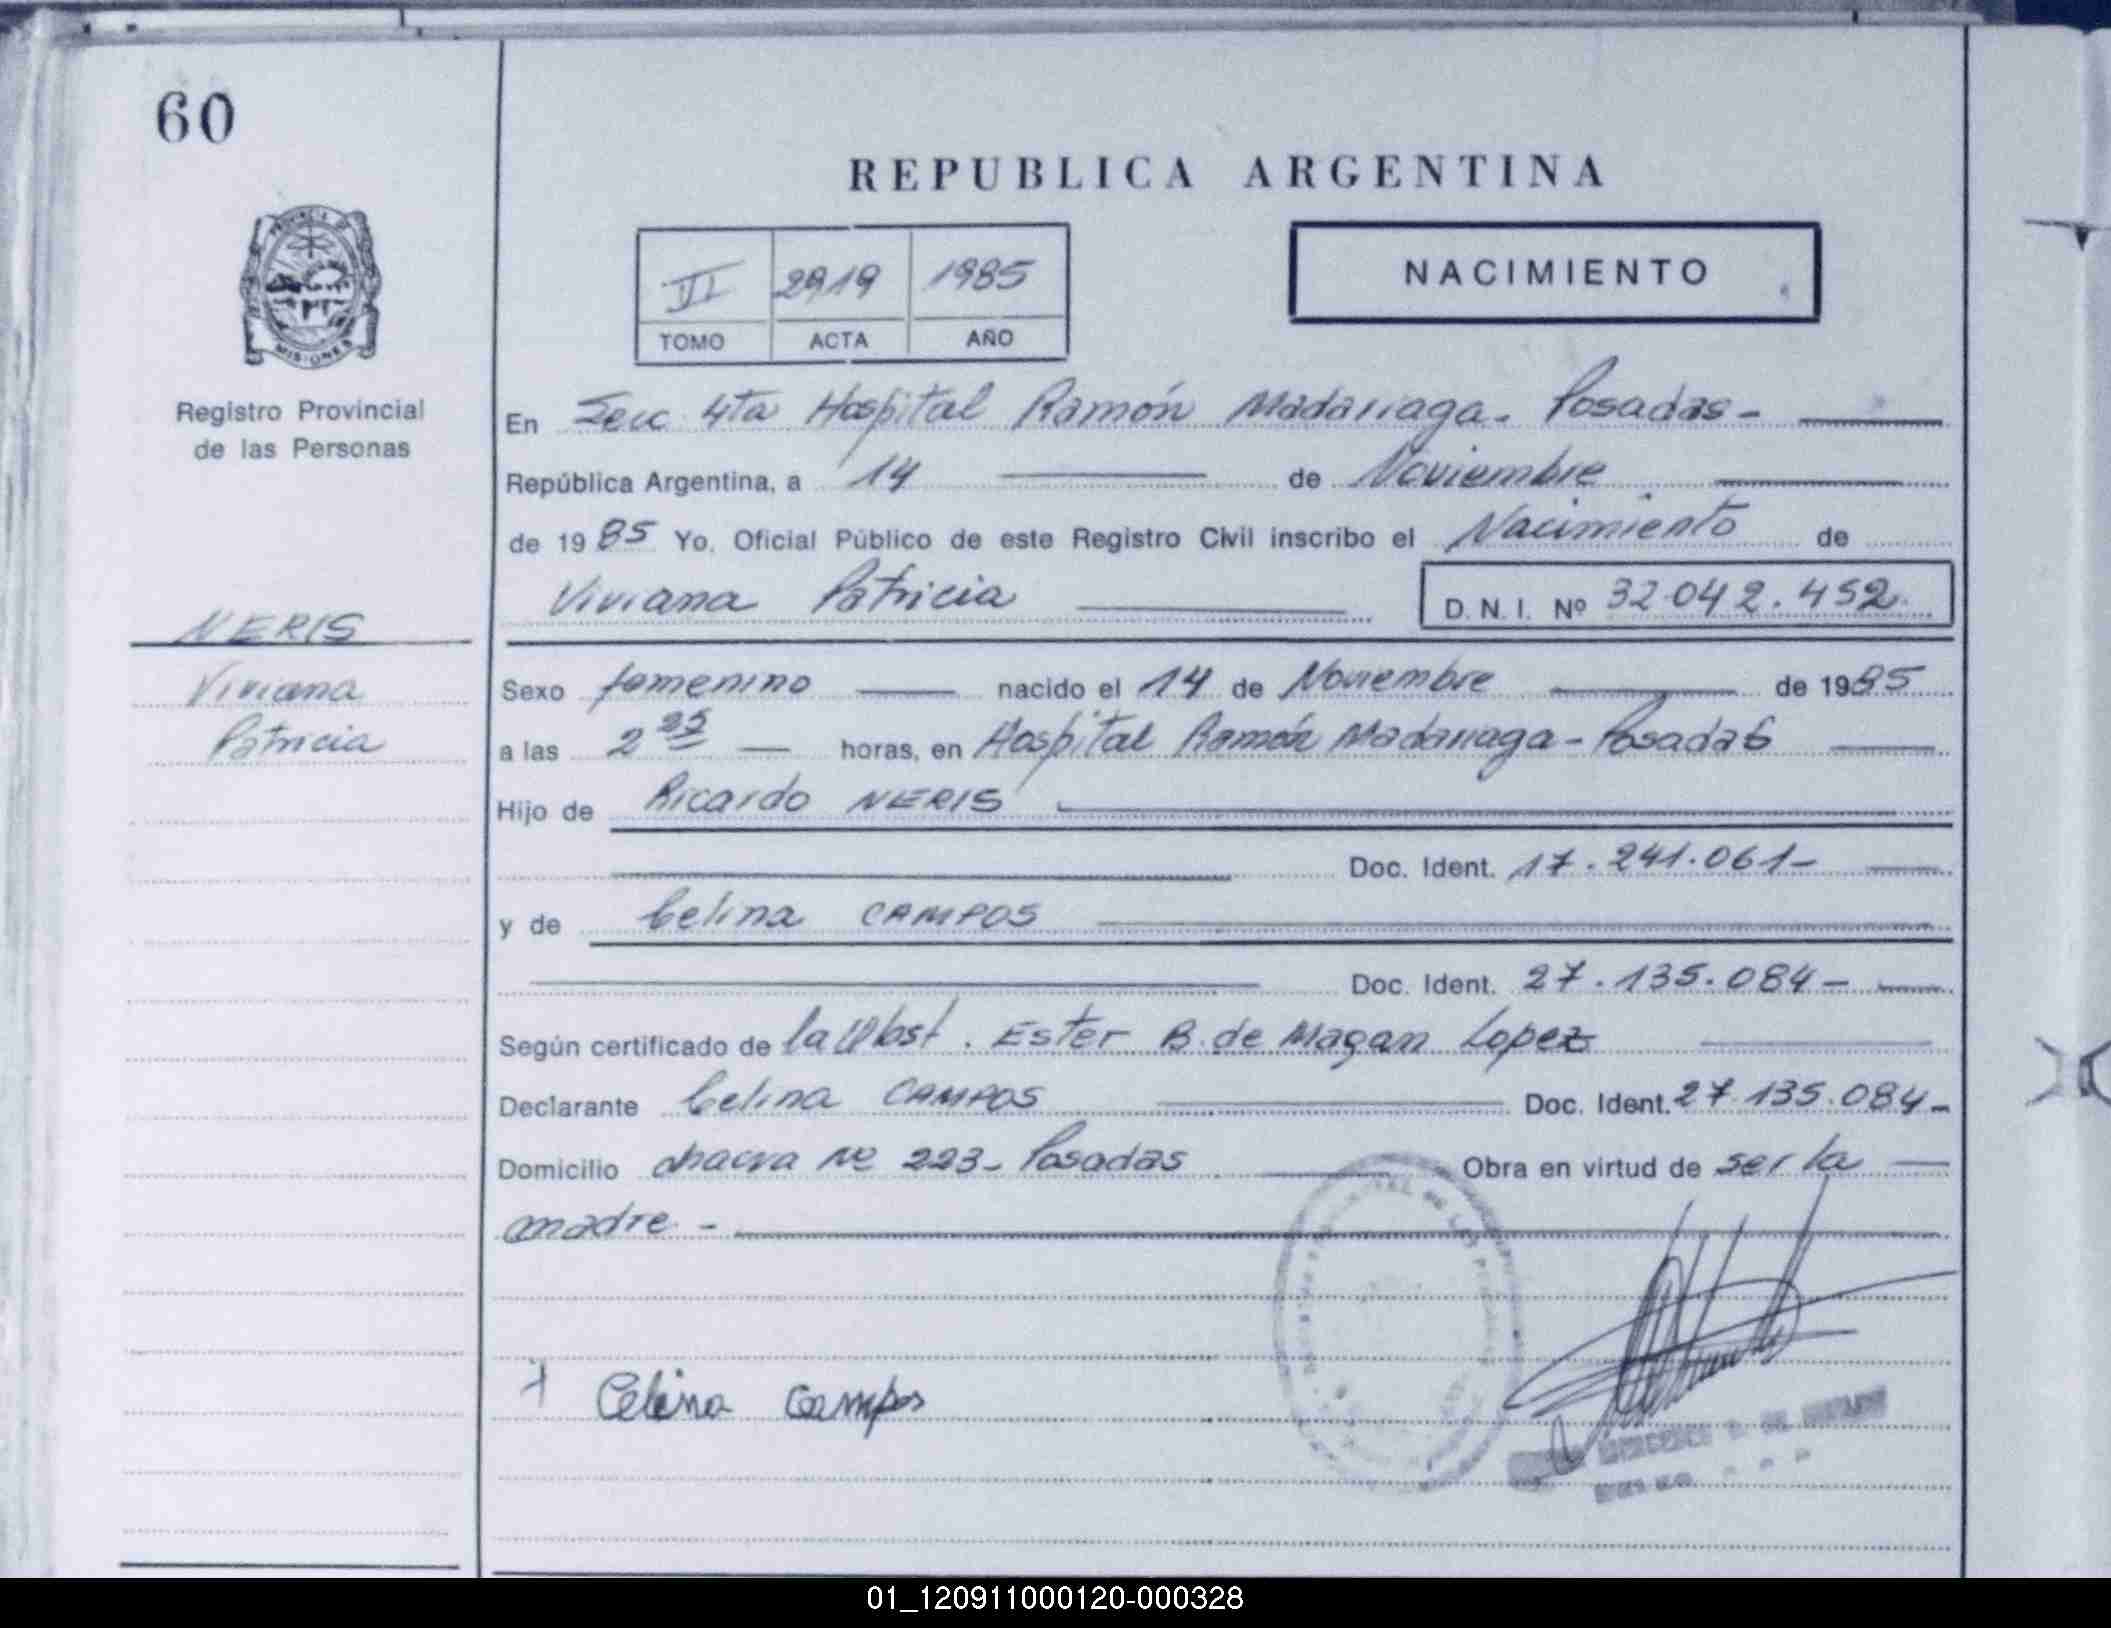 60
REPUBLICA ARGENTINA
PROVINCIA DE
MISIONES
VI 2919 1985
TOMO ACTA AÑO
NACIMIENTO
Registro Provincial
de las Personas
En Secc 4ta Hospital Ramón Madariaga - Posadas -
República Argentina, a 14 de Noviembre
de 1985 Yo, Oficial Público de este Registro Civil inscribo el Nacimiento de
Viviana Patricia D. N. I. Nº 32.042.452
NERIS
Viviana
Patricia
Sexo femenino nacido el 14 de Noviembre de 1985
a las 2 25 horas, en Hospital Ramón Madariaga - Posadas
Hijo de Ricardo NERIS
Doc. Ident. 17.241.061-
y de Celina CAMPOS
Doc. Ident. 27.135.084-
Según certificado de la Obst. Ester B. de Magan Lopez
Declarante Celina CAMPOS Doc. Ident. 27.135.084-
Domicilio chacra Nº 223- Posadas Obra en virtud de ser la
madre -
Celina Campos
01_120911000120-000328